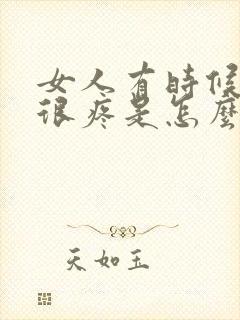 女人有時候
很疼是怎麼
天如玉